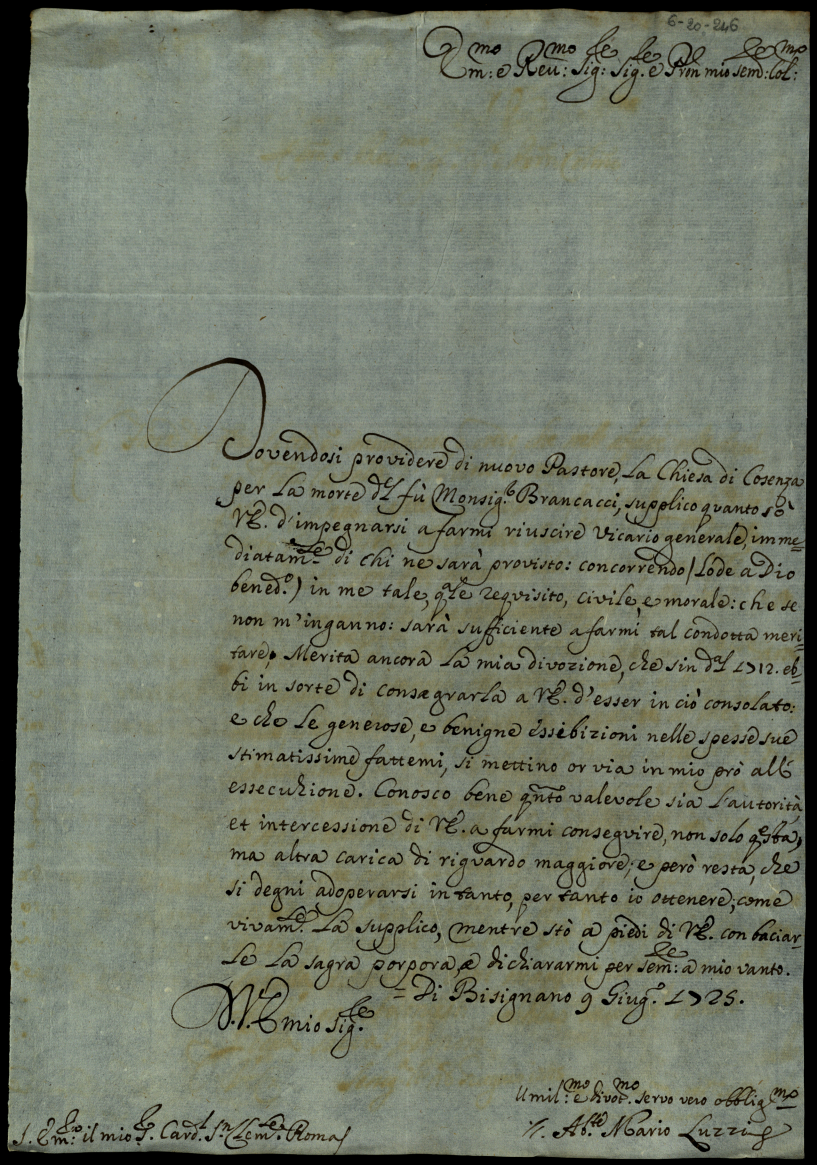 6-20-246
Em:mo e Reu:mo Sig:re Sig:re e Pron mio sem:re Col:mo
Dovendosi providere di nuovo Pastore, La Chiesa di Cosenza
per La morte del fù Monsig:r Brancacci, supplico quanto sò
VE. d'impegnarsi a farmi riuscire Vicario generale, imme=
diatam:te di chi ne sarà provisto: concorrendo (Lode a Dio
bened:o) in me tale, qale requisito, civile, e morale: che se
non m'inganno: sarà sufficiente a farmi tal condotta meri=
tare, Merita ancora La mia divozione, che sin dal 1712. eb=
bi in sorte di consegrarla a VE. d'esser in ciò consolato:
e che Le generose, e benigne essibizioni nelle spesse sue
stimatissime fattemi, si mettino or via in mio prò all'
essecuzione. Conosco bene qnto valevole sia L'autorità,
et intercessione di VE. a farmi conseguire, non solo qesta,
ma altra carica di riguardo maggiore; e però resta, che
si degni adoperarsi in tanto, per tanto io ottenere; come
vivam:te La supplico, mentre stò a piedi di VE. con baciar=
Le La sagra porpora, e dichiararmi per sem:re a mio vanto.
= Di Bisignano 9 Giug:o 1725.
D.V.E mio Sig:re
Umil:mo e divot:mo servo vero obblig:mo
Ab:te Mario Luzzi
S. Em:o il mio S. Card:l S:n Clem:te Roma